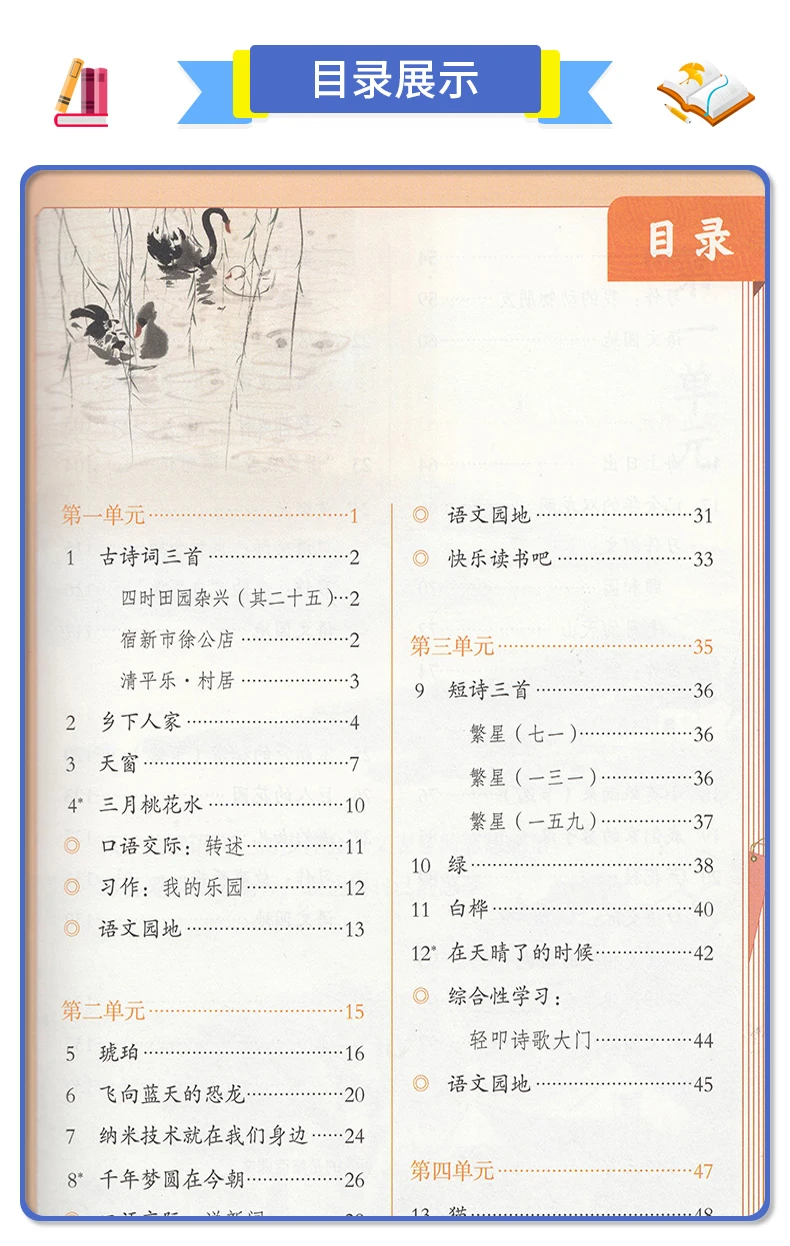 目录展示
目录
第一单元……………………………1
1 古诗词三首……………………2
四时田园杂兴（其二十五）…2
宿新市徐公店………………2
清平乐·村居………………3
2 乡下人家………………………4
3 天窗……………………………7
4* 三月桃花水…………………10
◎ 口语交际：转述……………11
◎ 习作：我的乐园……………12
◎ 语文园地……………………13
第二单元…………………………15
5 琥珀……………………………16
6 飞向蓝天的恐龙………………20
7 纳米技术就在我们身边……24
8* 千年梦圆在今朝……………26
◎ 语文园地……………………31
◎ 快乐读书吧…………………33
第三单元…………………………35
9 短诗三首………………………36
繁星（七一）………………36
繁星（一三一）……………36
繁星（一五九）……………37
10 绿……………………………38
11 白桦…………………………40
12* 在天晴了的时候……………42
◎ 综合性学习：
轻叩诗歌大门………………44
◎ 语文园地……………………45
第四单元…………………………47
13 猫……………………………48